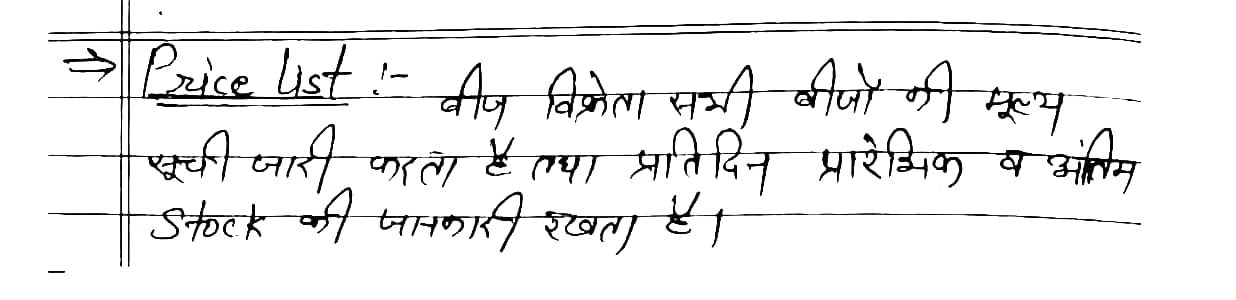 ⇒ Price List :- बीज विक्रेता सभी बीजों की मूल्य
सूची जारी करता है तथा प्रतिदिन प्रारंभिक व अंतिम
Stock की जानकारी रखता है।